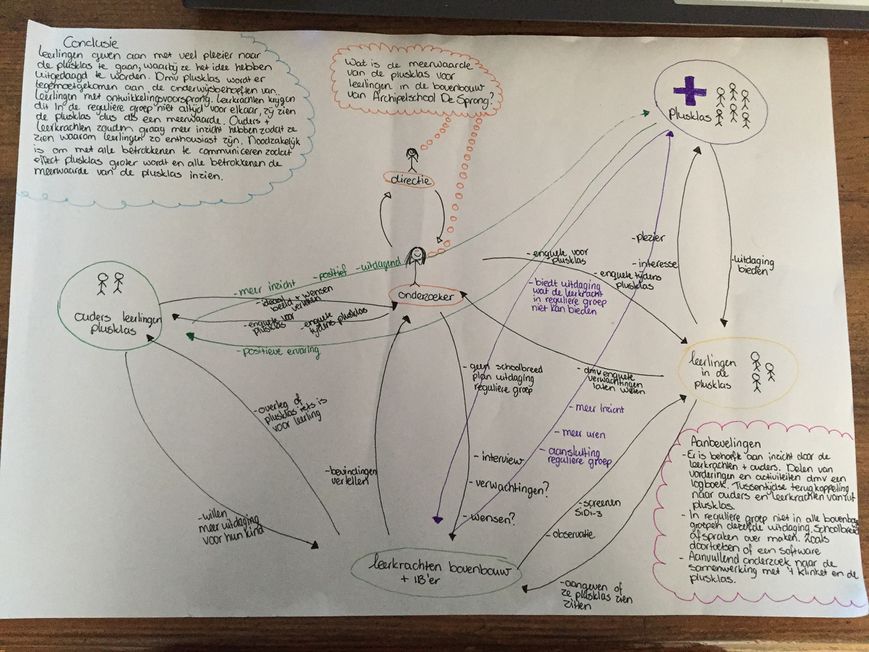 Conclusie
Leerlingen geven aan met veel plezier naar
de plusklas te gaan, waarbij ze het idee hebben
uitgedaagd te worden. Dmv plusklas wordt er
tegemoetgekomen aan de onderwijsbehoften van
leerlingen met ontwikkelingsvoorsprong. Leerkrachten krijgen
dit in de reguliere groep niet altijd voor elkaar, zij zien
de plusklas dus als een meerwaarde. Ouders +
leerkrachten zouden graag meer inzicht hebben zodat ze
zien waarom leerlingen zo enthousiast zijn. Noodzakelijk
is om met alle betrokkenen te communiceren zodat
effect plusklas groter wordt en alle betrokkenen de
meerwaarde van de plusklas inzien.
Wat is de meerwaarde
van de plusklas voor
leerlingen in de bovenbouw
van Archipelschool De Sprong?
plusklas
directie
onderzoeker
ouders leerlingen
plusklas
leerlingen
in de
plusklas
leerkrachten bovenbouw
+ IB'er
-meer inzicht -positief -uitdagend
beeld + wensen
vertellen
-enquete voor
plusklas
-enquete
tijdens plusklas
-positieve ervaring
-enquete voor
plusklas
-enquete tijdens
plusklas
-plezier
-interesse
-uitdaging
bieden
-biedt uitdaging
wat de leerkracht
in reguliere groep
niet kan bieden
-geen schoolbreed
plan uitdaging
reguliere groep
-dmv enquete
verwachtingen
laten weten
-meer inzicht
-meer uren
-aansluiting
reguliere groep
-overleg of
plusklas iets is
voor leerling
-bevindingen
vertellen
-interview
-verwachtingen?
-wensen?
-willen
meer uitdaging
voor hun kind
-screenen
SiDi-3
-observatie
-aangeven of
ze plusklas zien
zitten
Aanbevelingen
-Er is behoefte aan inzicht door de
leerkrachten + ouders. Delen van
vorderingen en activiteiten dmv een
logboek. Tussentijdse terugkoppeling
naar ouders en leerkrachten vanuit
plusklas.
-In reguliere groep niet in alle bovenbouw
groepen dezelfde uitdaging. Schoolbreed
afspraken over maken. Zoals
doortoetsen of een software
-Aanvullend onderzoek naar de
samenwerking met 't klinket en de
plusklas.